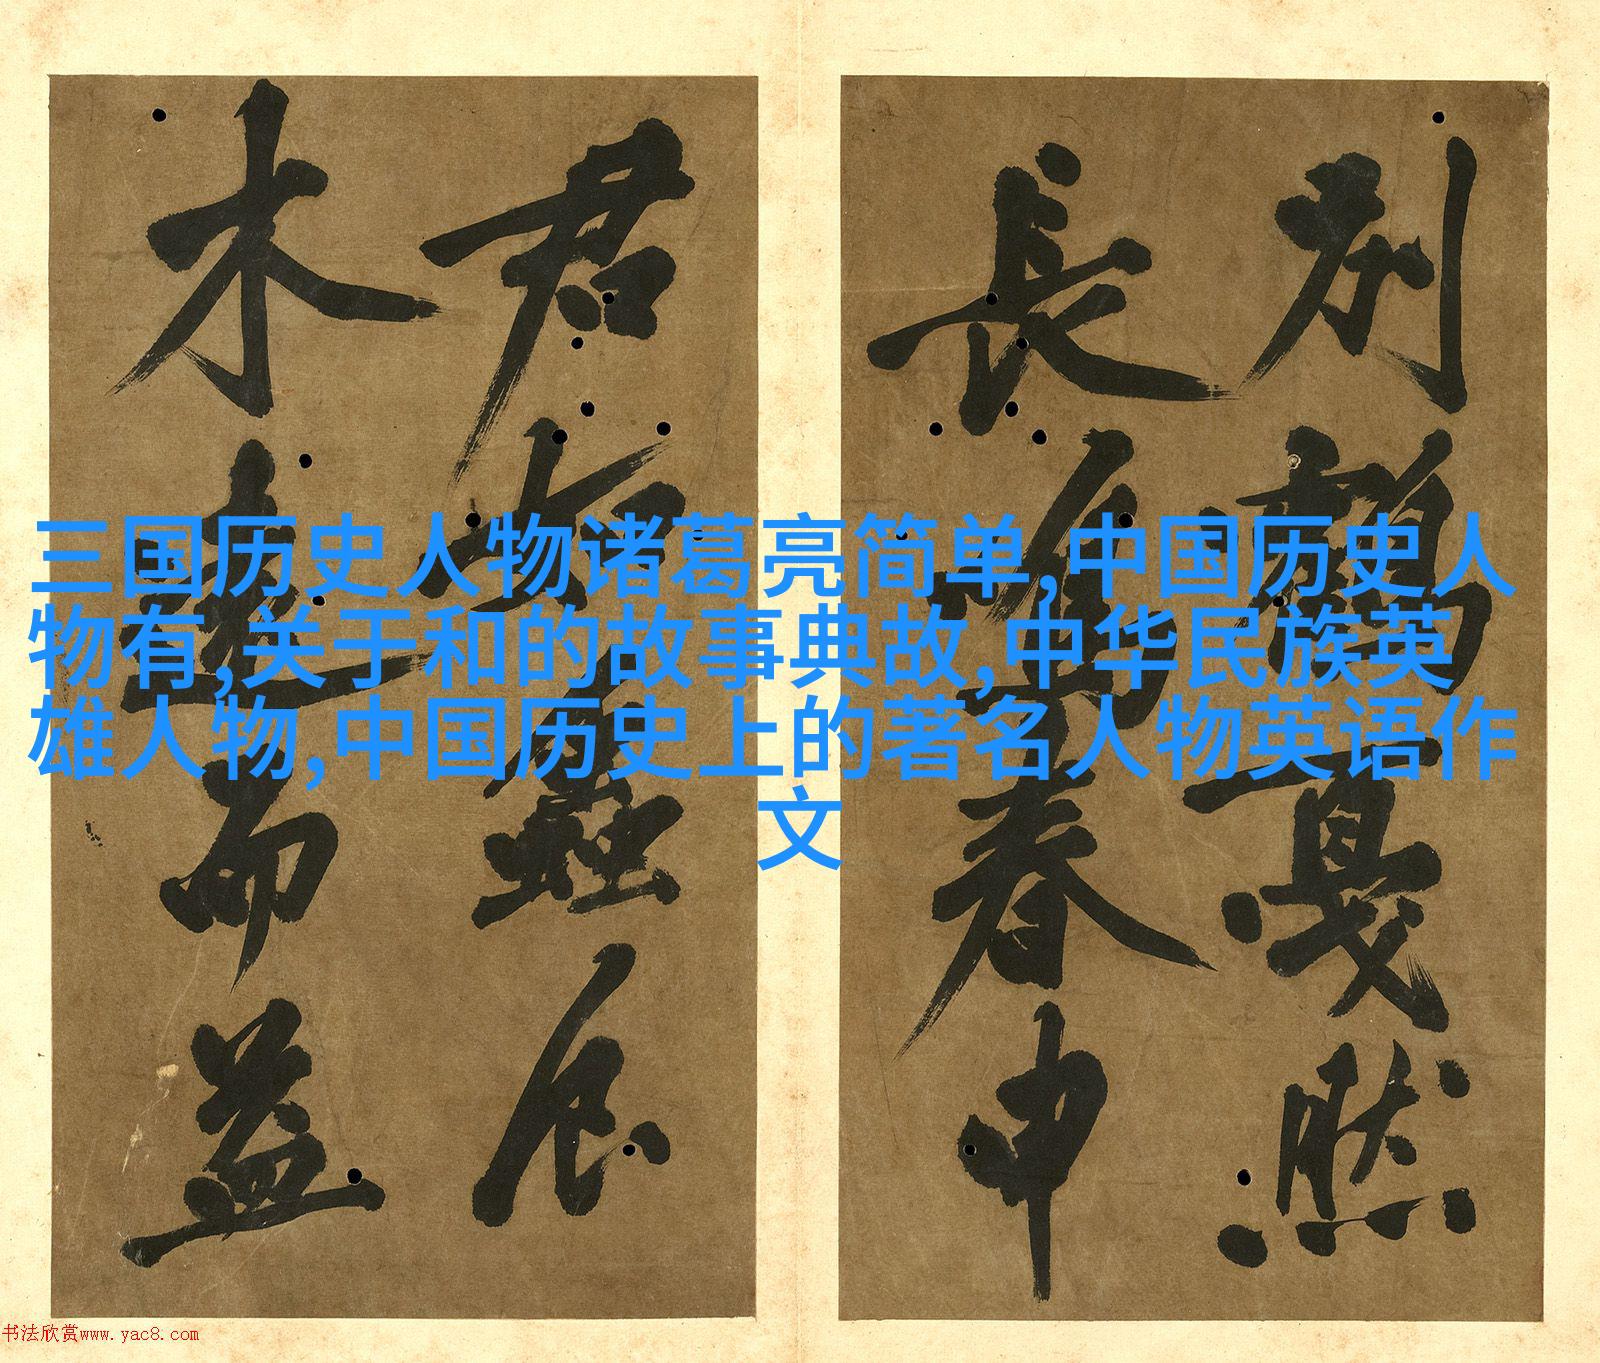 別鶴戛然
長鳴春申
君
木而益
三国历史人物诸葛亮简单,中国历史人
物有,关于和的故事典故,中华民族英
雄人物,中国历史上的著名人物英语作
文
书法欣赏www.yac8.com